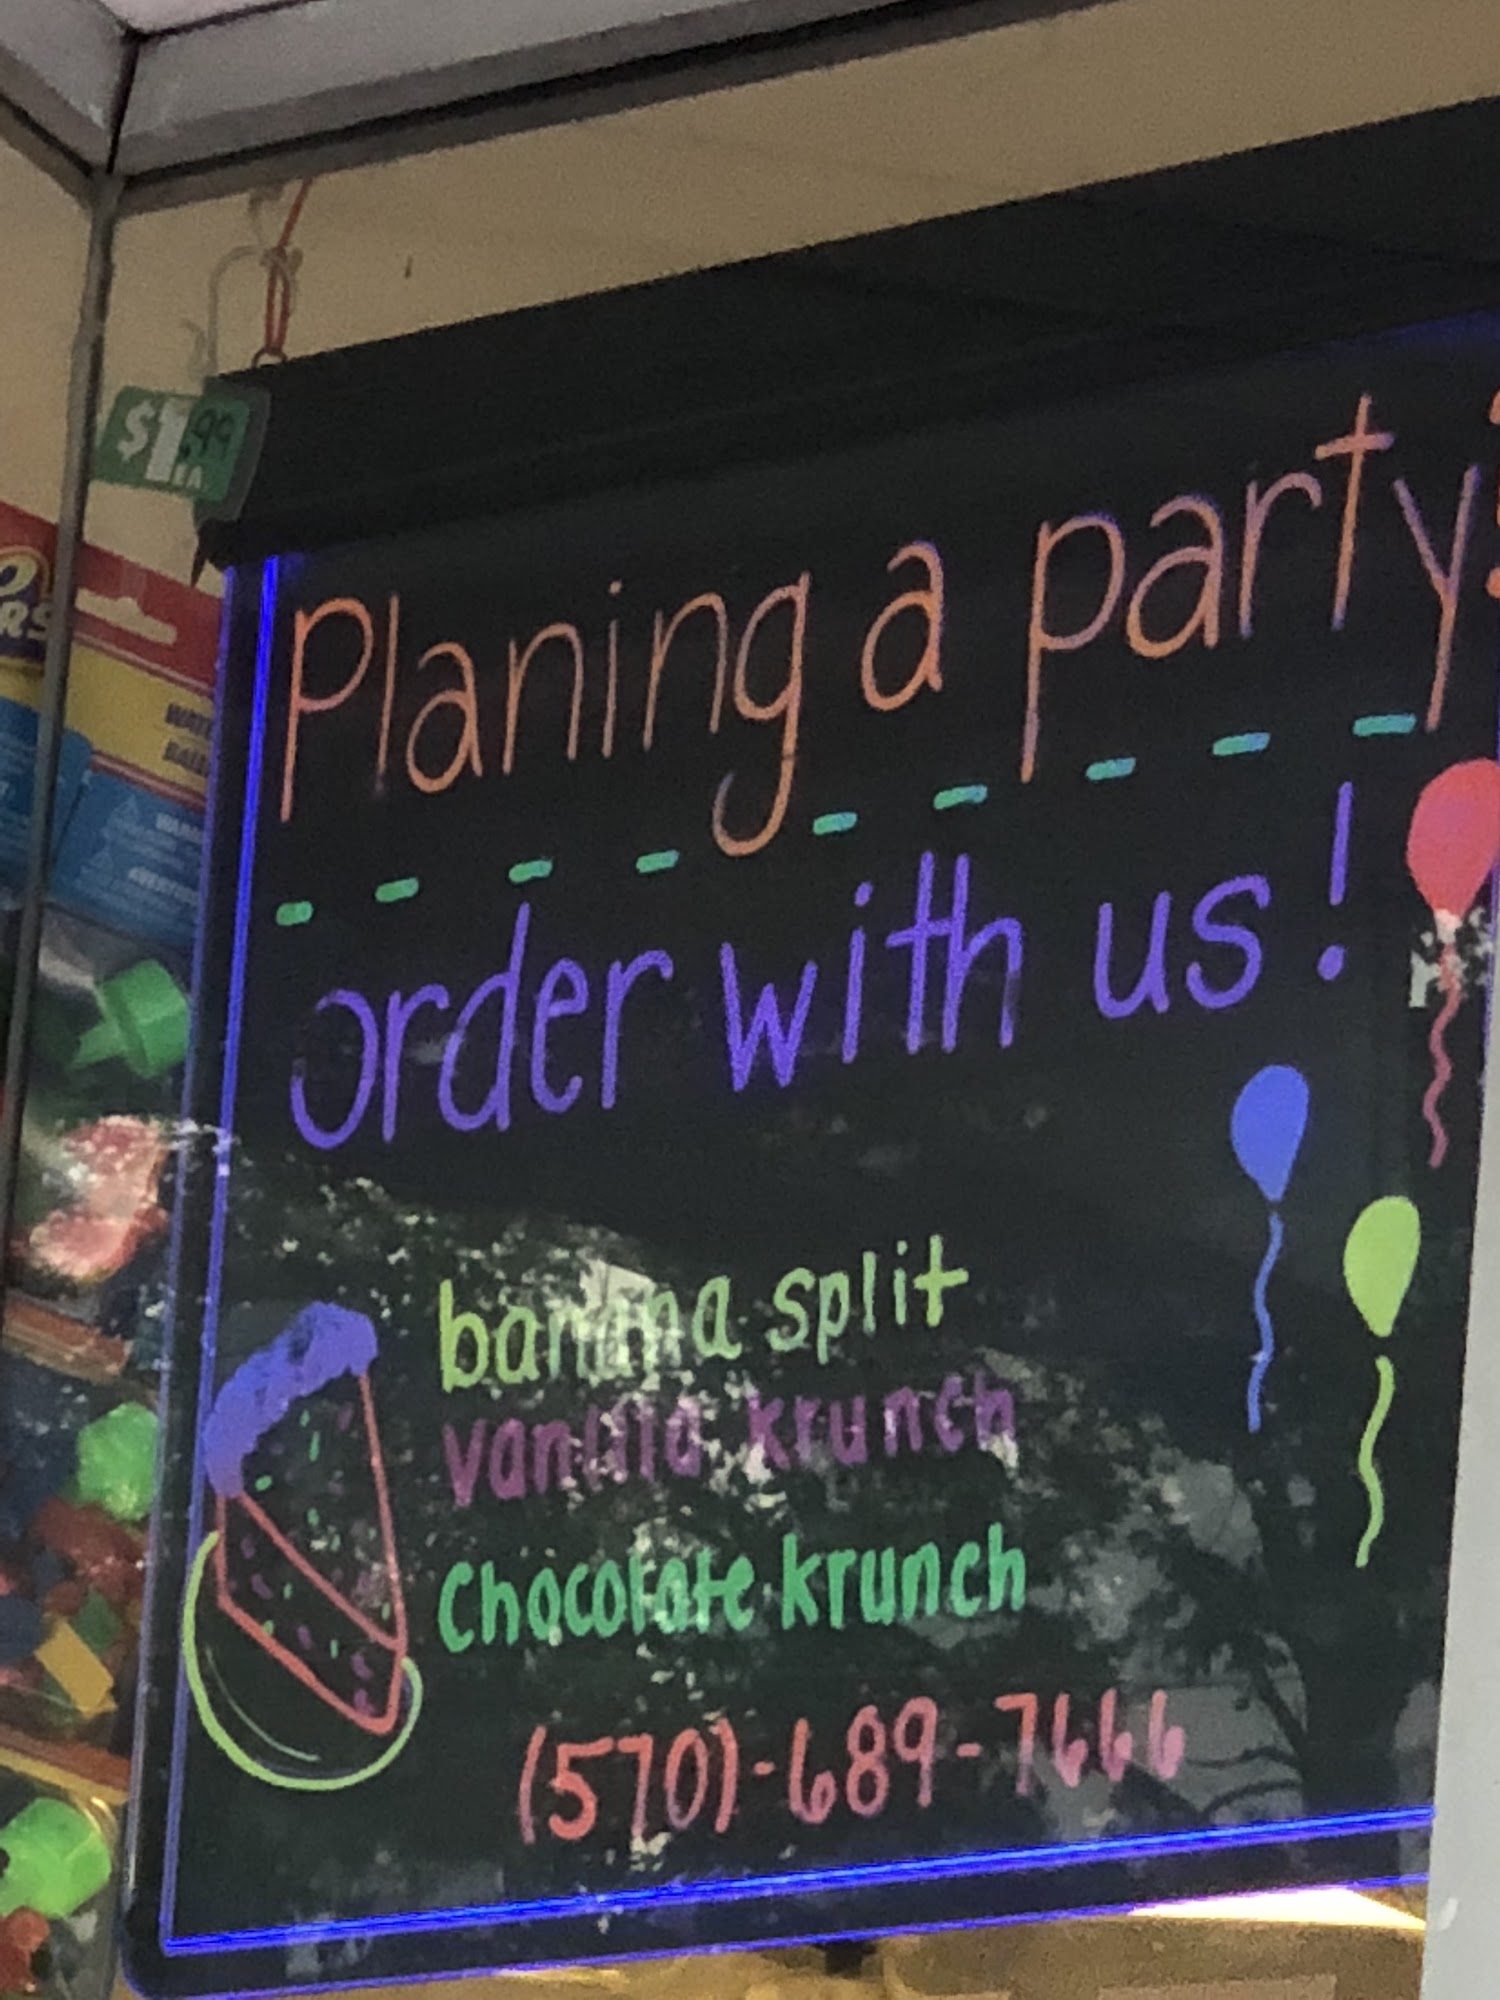 $1.99
EA
Planing a party?
order with us!
banana split
vanilla krunch
Chocolate krunch
(570)-689-7666